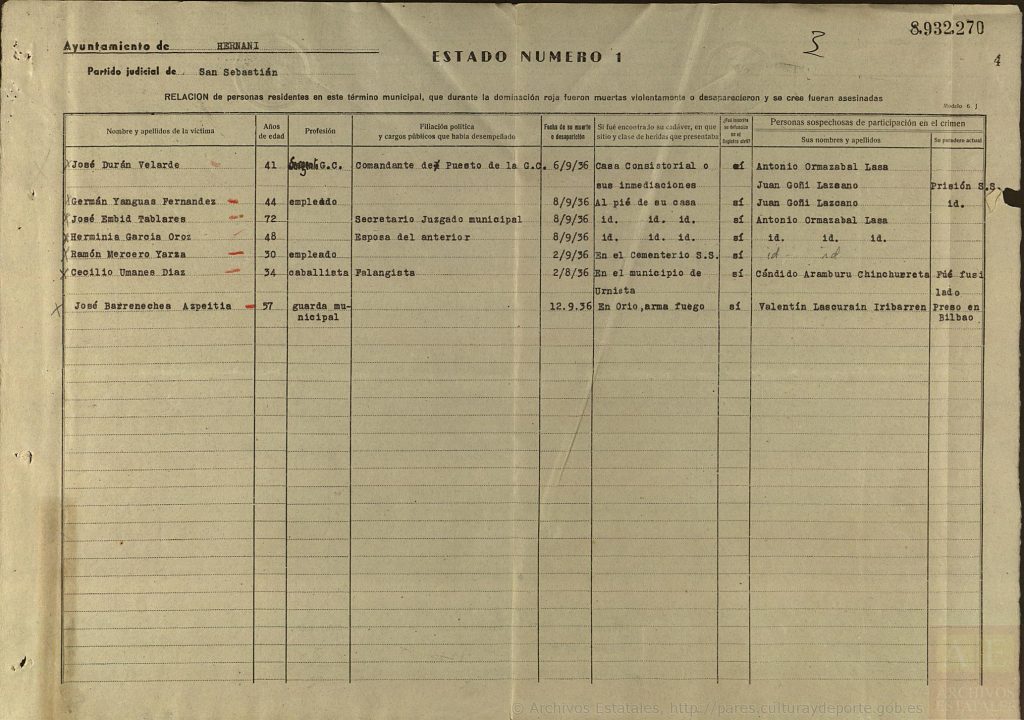 8.932.270
Ayuntamiento de HERNANI
3
4
ESTADO NUMERO 1
Partido judicial de San Sebastián
RELACION de personas residentes en este término municipal, que durante la dominación roja fueron muertas violentamente o desaparecieron y se cree fueran asesinadas
Modelo 6. J
Nombre y apellidos de la víctima
Años de edad
Profesión
Filiación política y cargos públicos que había desempeñado
Fecha de su muerte o desaparición
Si fué encontrado su cadáver, en que sitio y clase de heridas que presentaba
¿Fué inscrita su defunción en el Registro civil?
Personas sospechosas de participación en el crimen
Sus nombres y apellidos
Su paradero actual
José Durán Velarde 41 G.C. Comandante de Puesto de la G.C. 6/9/36 Casa Consistorial o sí Antonio Ormazabal Lasa
sus inmediaciones Juan Goñi Lazcano Prisión S.S.
Germán Yanguas Fernandez 44 empleado 8/9/36 Al pié de su casa sí Juan Goñi Lazcano id.
José Embid Tablares 72 Secretario Juzgado municipal 8/9/36 id. id. id. sí Antonio Ormazabal Lasa
Herminia Garcia Oroz 48 Esposa del anterior 8/9/36 id. id. id. sí id. id. id.
Ramón Mercero Yarza 30 empleado 2/9/36 En el Cementerio S.S. sí id - id
Cecilio Umanes Diaz 34 caballista Falangista 2/8/36 En el municipio de sí Cándido Aramburu Chinchurreta Fué fusi
Urnieta lado
José Barrenechea Azpeitia 57 guarda mu- 12.9.36 En Orio,arma fuego sí Valentín Lascurain Iribarren Preso en
nicipal Bilbao
© Archivos Estatales, http://pares.culturaydeporte.gob.es
ARCHIVOS
ESTATALES